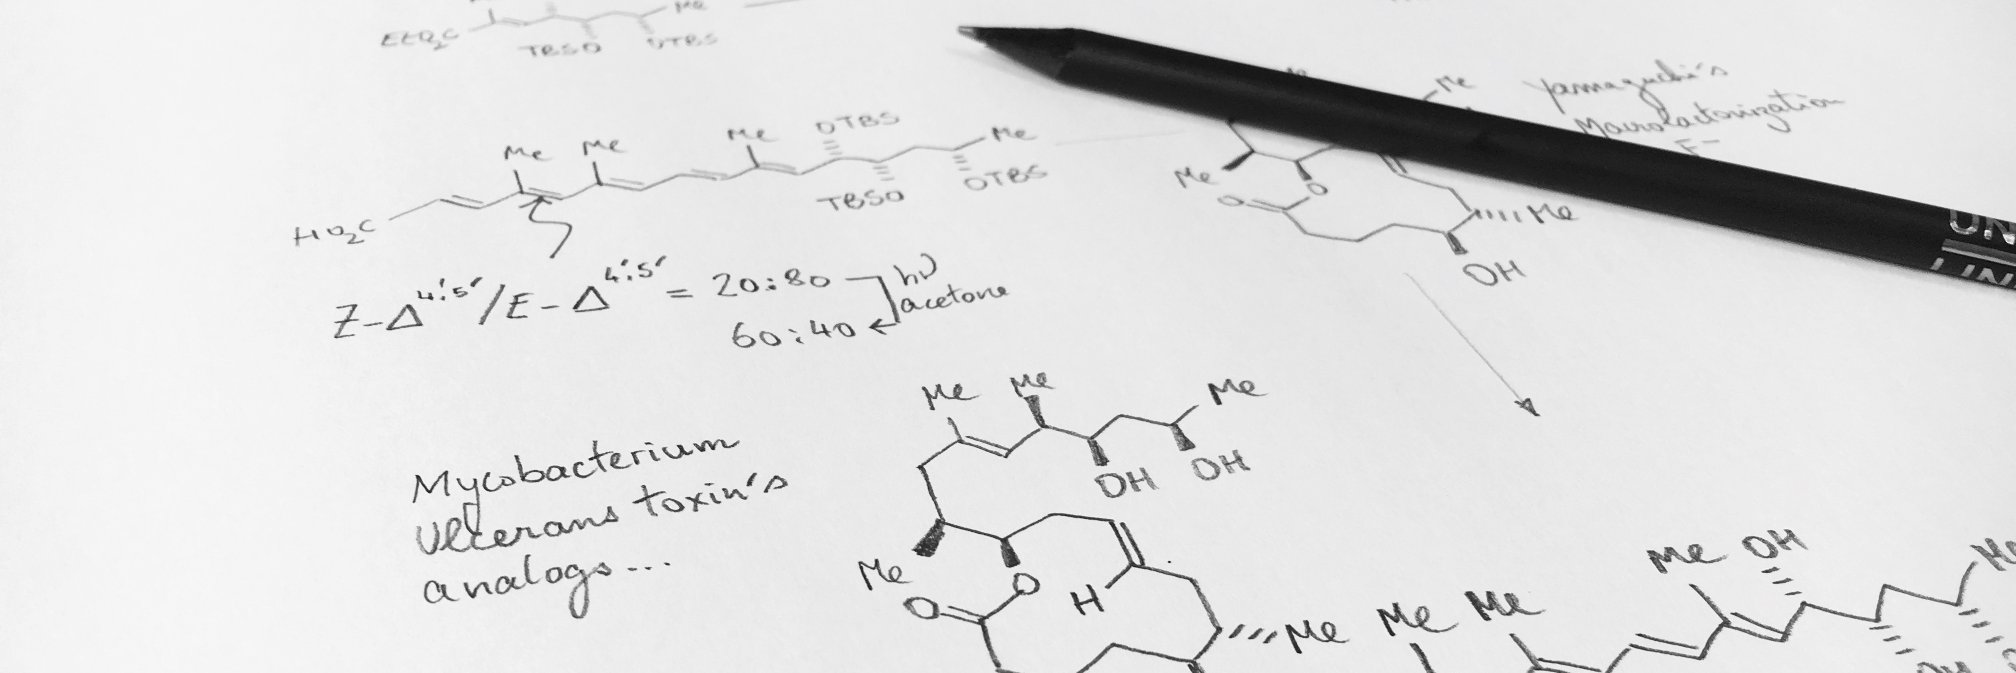 EtO₂C
TBSO
OTBS
Me
Yamaguchi's
Macrolactonization
F⁻
HO₂C
Me
Me
Me
OTBS
TBSO
OTBS
Me
Me
Me
O
O
Me
OH
Z-Δ⁴'·⁵'/E-Δ⁴'·⁵' = 20:80
60:40
hν
acetone
Mycobacterium
ulcerans toxin's
analogs...
Me
Me
Me
OH
OH
Me
O
O
H
Me
Me
Me
Me
OH
Me
OH
UN